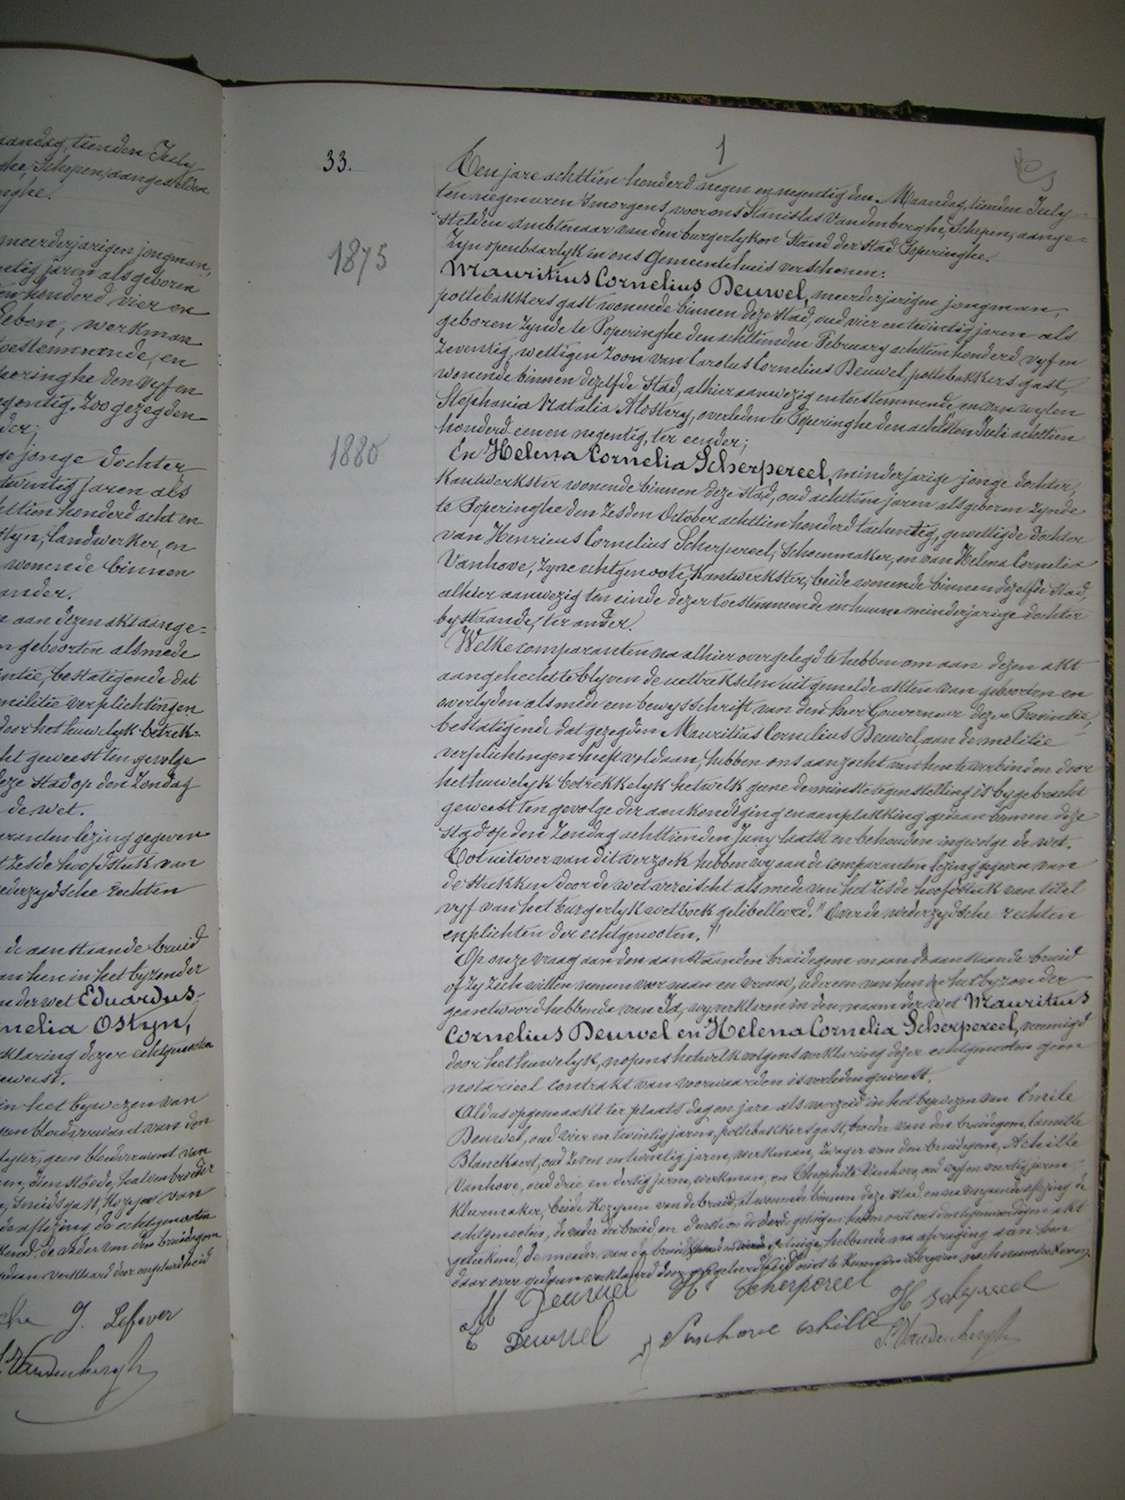 aandag, tienden July
ghe, Schepen, aangestelden
nghe.
meerderjarigen jongman,
jaren als geboren
honderd vier en
leven, werkman
toestemmende, en
peringhe den vyf en
gentig. Zoo gezegden
der;
ge jonge Dochter
twintig jaren als
ttien honderd acht en
styn, landwerker, en
wonende binnen
ander.
aan dezen akt aange=
n geboorten alsmede
intie, bestatigende dat
militie verplichtingen
door het huwelyk betrek-
ht geweest ten gevolge
deze Stad op den Zondag
de wet.
ranten lezing gegeven
t Zesde hoofdstuk van
ederzydsche rechten
de aanstaande bruid
an hen in het byzonder
der wet Eduardus
nelia Ostyn,
klaring dezer echtgenooten
geweest.
in het bywezen van
geen bloedverwant van den
geen bloedverwant van
broeder
Smidsgast, Kozyn van
de aflezing de echtgenooten
de vader van den bruidegom
verklaard door ongeleerdheid
che J. Lefever
S. Vandenberghe
33.
1
1875
1880
Ten jare achttien honderd negen en negentig den Maandag, tienden July
ten negen uren 's morgens, voor ons Stanislas Vandenberghe, Schepen, aange=
stelden Ambtenaar van den burgerlyken Stand der Stad Poperinghe.
Zyn openbaarlyk in ons Gemeentehuis verschenen:
Mauritius Cornelius Deuwel, meerderjarigen jongman,
pottebakkers gast wonende binnen deze stad, oud vier en twintig jaren als
geboren zynde te Poperinghe den achttienden February achttien honderd vyf en
zeventig, wettigen zoon van Carolus Cornelius Deuwel, pottebakkers gast,
wonende binnen dezelfde Stad, alhier aanwezig en toestemmende en van wylen
Stephania Natalia Mostery, overleden te Poperinghe den achtsten Juli achttien
honderd een en negentig, ter eender;
En Helena Cornelia Scherpereel, minderjarige jonge dochter,
Kantwerkster wonende binnen deze stad, oud achttien jaren als geboren zynde
te Poperinghe den zesden October achttien honderd tachentig, gewettigde dochter
van Henricus Cornelius Scherpereel, Schoenmaker, en van Helena Cornelia
Vanhove, zyne echtgenoote, Kantwerkster, beide wonende binnen dezelfde Stad,
alhier aanwezig ten einde dezer toestemmende en hunne minderjarige dochter
bystaande, ter ander.
Welke comparanten na alhier overgelegd te hebben om aan dezen akt
aangehecht te blyven de uettreksels uit gemelde akten van geboorten en
overlyden alsmede een bewysschrift van den heer Gouverneur dezer Provintie,
bestatigende dat gezegden Mauritius Cornelius Deuwel, aan de militie
verplichtingen heeft voldaan, hebben ons aanzocht van hen te verbinden door
het huwelyk betrekkelyk hetwelk geene de minste tegenstelling is bygebracht
geweest ten gevolge der aankondiging en aanplakking gedaan binnen deze
stad op den Zondag achttienden Juny laatst en behouden ingevolge de wet.
Tot uitvoer van dit verzoek hebben wy aan de comparanten lezing gegeven van
de stukken door de wet vereischt alsmede van het zesde hoofdstuk van titel
vyf van het burgerlyk wetboek gelibelleerd: "Over de wederzydsche rechten
en plichten der echtgenooten."
Op onze vraag aan den aanstaanden bruidegom en aan de aanstaande bruid
of zy zich willen nemen voor man en vrouw, iederen van hen in het byzonder
geantwoord hebbende van Ja, wy verklaren in den naam der wet Mauritius
Cornelius Deuwel en Helena Cornelia Scherpereel, vereenigd
door het huwelyk, nopens hetwelk volgens verklaring dezer echtgenooten geen
notarieel contrakt van voorwaarden is verleden geweest.
Aldus opgemaakt ter plaats dag en jare als voorzeid in het bywezen van Emile
Deuwel, oud vier en twintig jaren, pottebakkersgast, broeder van den bruidegom, Camille
Blanckaert, oud zeven en twintig jaren, werkman, zwager van den bruidegom, Achille
Vanhove, oud drie en dertig jaren, werkman, en Theophile Vanhove, oud vyf en veertig jaren
kleermaker, beide Kozynen van de bruid, al wonende binnen deze stad en na voorgaande aflezing de
echtgenooten, de vader der bruid en de getuigen hebben met ons den tegenwoordigen akt
geteekend, de moeder van de bruid getuige, hebbende na afvraging aan hen
daar over gedaan verklaard door ongeleerdheid niet te kunnen schryven noch naamteekenen
M Deuwel H. Scherpereel H Scherpereel
E Deuwel Vanhove Achille S. Vandenberghe